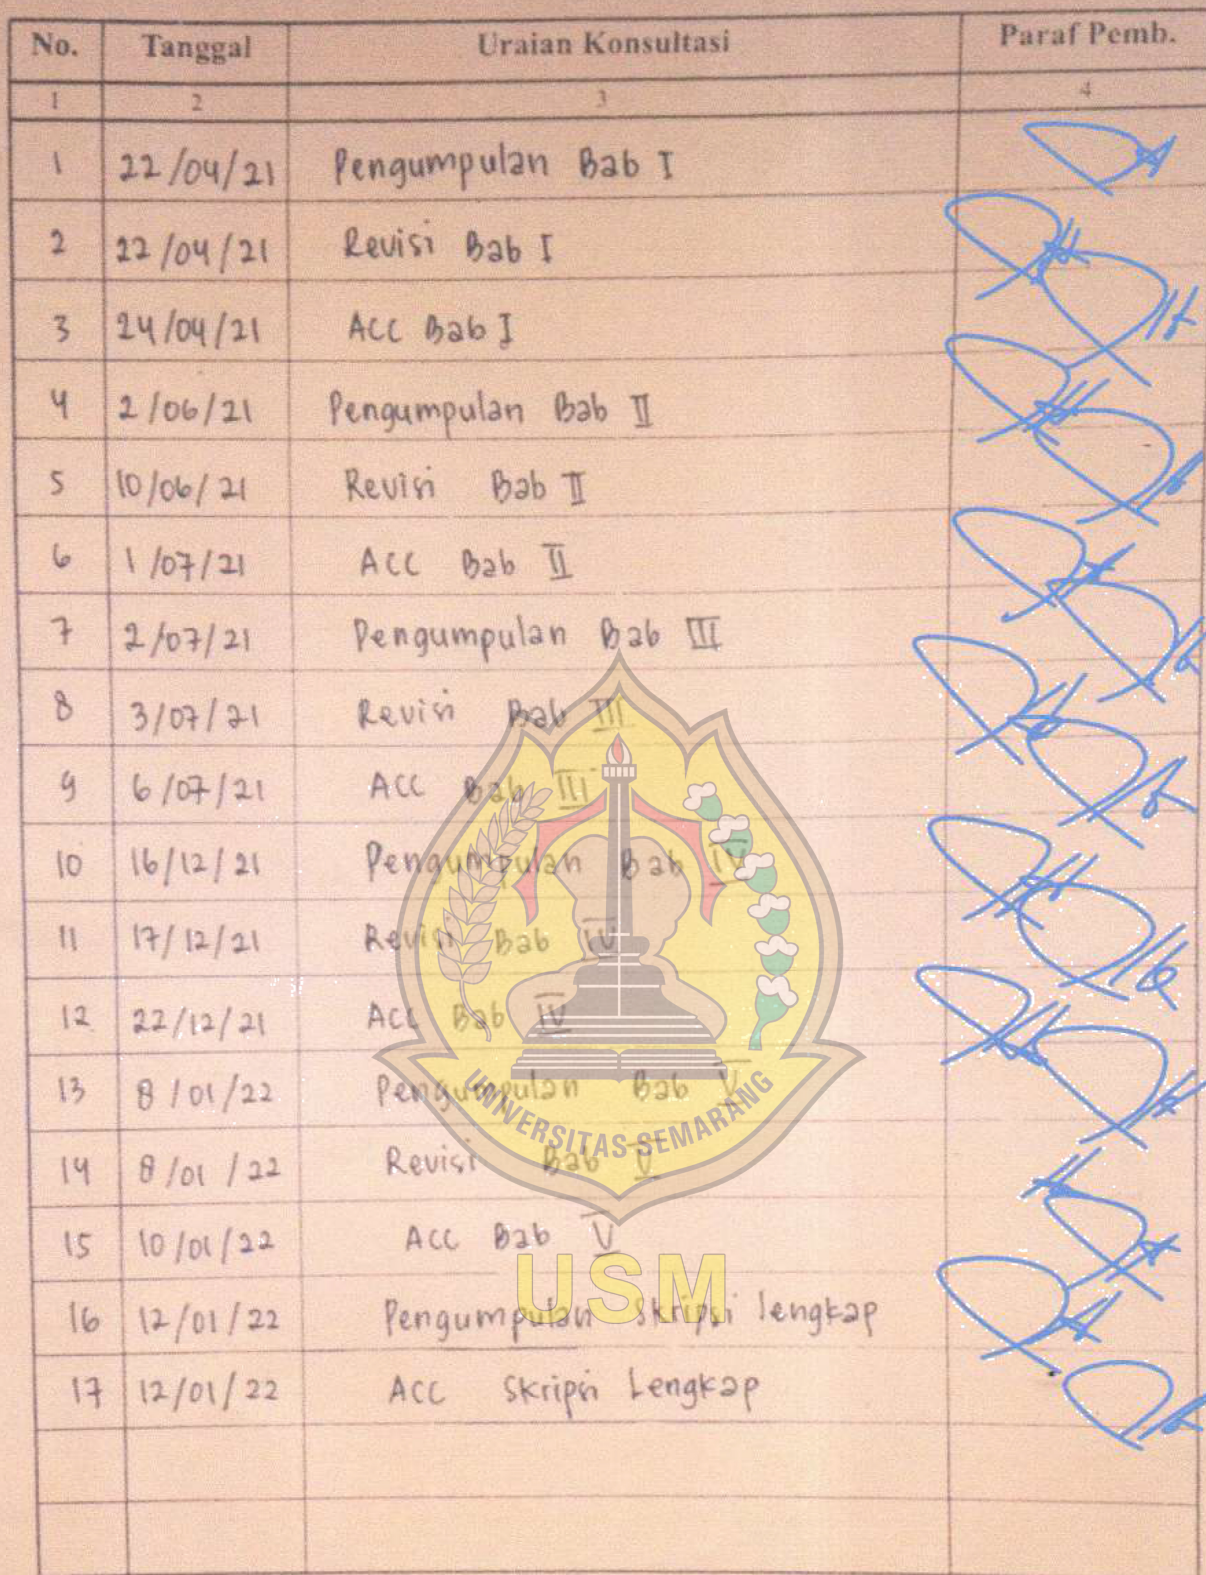 No. Tanggal Uraian Konsultasi Paraf Pemb.
1 2 3 4
1 22/04/21 Pengumpulan Bab I
2 22/04/21 Revisi Bab I
3 24/04/21 ACC Bab I
4 2/06/21 Pengumpulan Bab II
5 10/06/21 Revisi Bab II
6 1/07/21 ACC Bab II
7 2/07/21 Pengumpulan Bab III
8 3/07/21 Revisi Bab III
9 6/07/21 ACC Bab III
10 16/12/21 Pengumpulan Bab IV
11 17/12/21 Revisi Bab IV
12 22/12/21 ACC Bab IV
13 8/01/22 Pengumpulan Bab V
14 8/01/22 Revisi Bab V
15 10/01/22 ACC Bab V
16 12/01/22 Pengumpulan Skripsi lengkap
17 12/01/22 ACC Skripsi Lengkap
UNIVERSITAS SEMARANG
USM